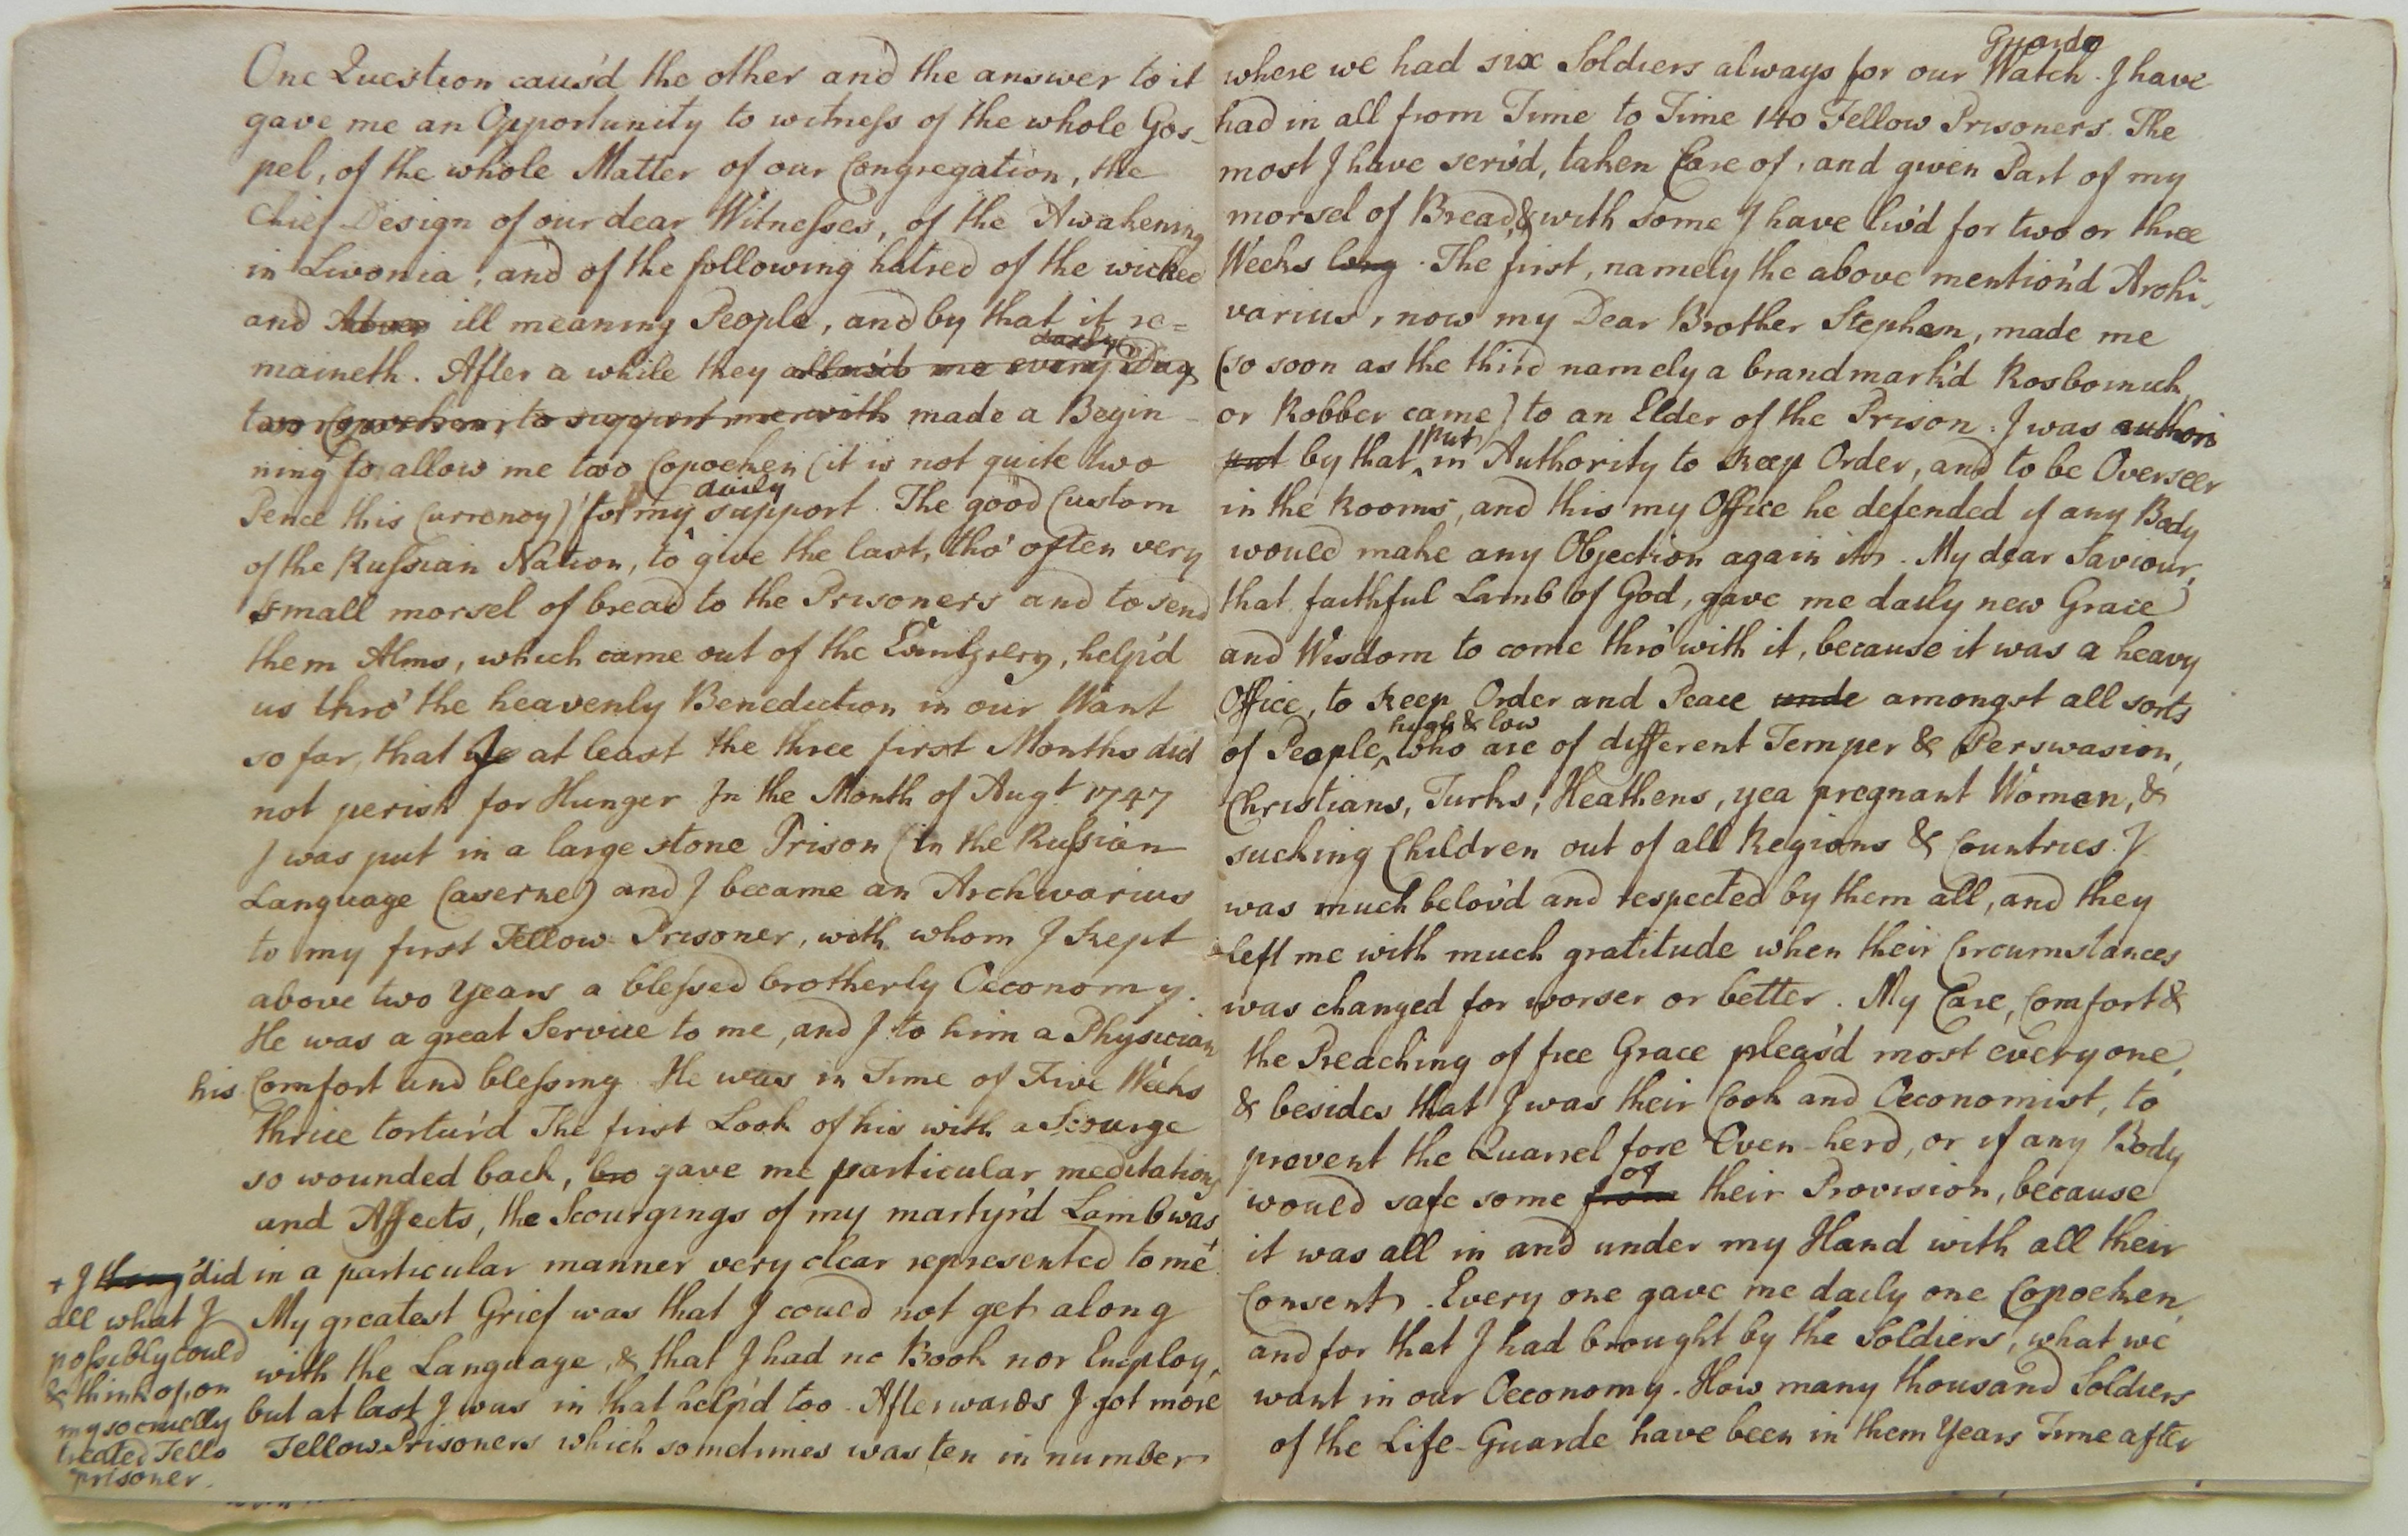 One Question caus'd the other and the answer to it
gave me an Opportunity to witness of the whole Gos-
pel, of the whole Matter of our Congregation, the
Chief Design of our dear Witnesses, of the Awakening
in Livonia, and of the following hatred of the wicked
and ill meaning People, and by that it re=
maineth. After a while they allow'd me every Day
daily
two Copecken, to support me with made a Begin-
ning to allow me two Copecken (it is not quite two
Pence this Currency) for my daily support. The good Custom
of the Russian Nation, to give the last, tho' often very
small morsel of bread to the Prisoners and to send
them Alms, which came out of the , help'd
us thro' the heavenly Benediction in our Want
so far, that I at least the three first Months did
not perish for Hunger In the Month of Augt. 1747
I was put in a large stone Prison (in the Russian
Language Caserne) and I became an Archivarius
to my first Fellow Prisoner, with whom I kept
above two Years a blessed brotherly Oeconomy.
He was a great Service to me, and I to him a Physician
his Comfort and blessing. He was in Time of Five Weeks
thrice tortur'd The first Look of his with a Scourge
so wounded back, gave me particular meditations
and Affects, the Scourgings of my martyr'd Lamb was
in a particular manner very clear represented to me
My greatest Grief was that I could not get along
with the Language, & that I had no Book nor Employ,
but at last I was in that help'd too. Afterwards I got more
Fellow Prisoners which somtimes was ten in number
+ I did
all what I
possibly could
& think of, on
my so cruelly
treated Fello
prisoner.
Guarde
where we had six Soldiers always for our Watch. I have
had in all from Time to Time 140 Fellow Prisoners. The
most I have serv'd, taken Care of, and given Part of my
morsel of Bread, & with some I have liv'd for two or three
Weeks long. The first, namely the above mention'd Archi-
varius, now my Dear Brother Stephan, made me
(so soon as the third namely a brandmark'd Rosbornick
or Robber came) to an Elder of the Prison. I was authori
put by that put in Authority to keep Order, and to be Overseer
in the Rooms, and this my Office he defended if any Body
would make any Objection again it. My dear Saviour,
that faithful Lamb of God, gave me daily new Grace
and Wisdom to come thro' with it, because it was a heavy
Office, to keep Order and Peace unde amongst all sorts
of People, high & low who are of different Temper & Perswasion,
Christians, Turks, Heathens, yea pregnant Women, &
sucking Children out of all Regions & Countries. I
was much belov'd and respected by them all, and they
left me with much gratitude when their Circumstances
was changed for worser or better. My Care, Comfort &
the Preaching of free Grace pleas'd most every one,
& besides that I was their Cook and Oeconomist, to
prevent the Quarrel fore Oven-herd, or if any Body
would safe some from of their Provision, because
it was all in and under my Hand with all their
Consent. Every one gave me daily one Copecken,
and for that I had brought by the Soldiers, what we
want in our Oeconomy. How many thousand Soldiers
of the Life-Guarde have been in them Years Time after